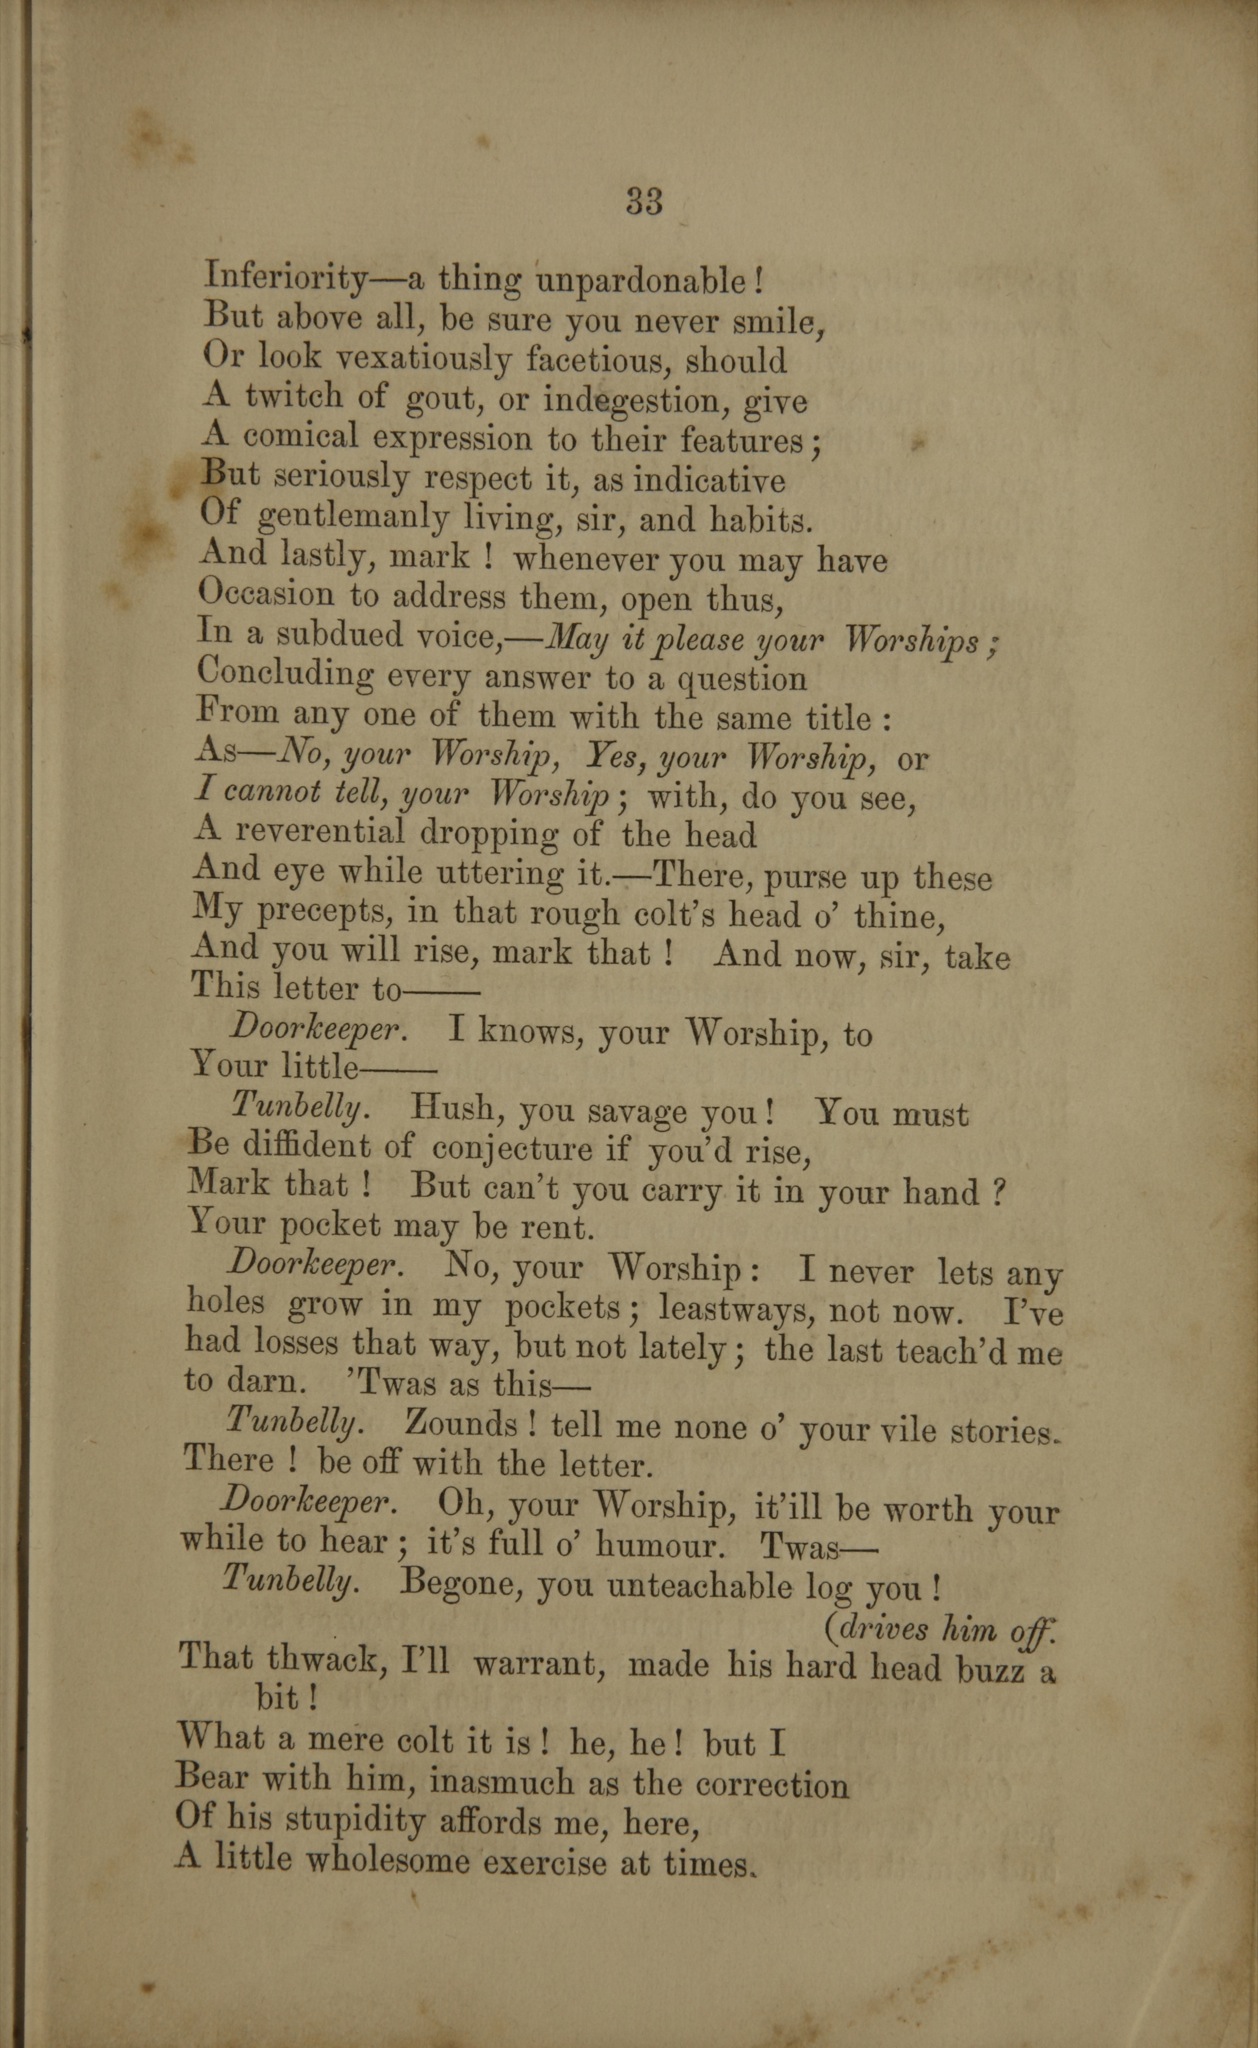 33
Inferiority—a thing unpardonable!
But above all, be sure you never smile,
Or look vexatiously facetious, should
A twitch of gout, or indegestion, give
A comical expression to their features;
But seriously respect it, as indicative
Of gentlemanly living, sir, and habits.
And lastly, mark! whenever you may have
Occasion to address them, open thus,
In a subdued voice,—May it please your Worships;
Concluding every answer to a question
From any one of them with the same title:
As—No, your Worship, Yes, your Worship, or
I cannot tell, your Worship; with, do you see,
A reverential dropping of the head
And eye while uttering it.—There, purse up these
My precepts, in that rough colt's head o' thine,
And you will rise, mark that! And now, sir, take
This letter to——
Doorkeeper. I knows, your Worship, to
Your little——
Tunbelly. Hush, you savage you! You must
Be diffident of conjecture if you'd rise,
Mark that! But can't you carry it in your hand?
Your pocket may be rent.
Doorkeeper. No, your Worship: I never lets any
holes grow in my pockets; leastways, not now. I've
had losses that way, but not lately; the last teach'd me
to darn. 'Twas as this—
Tunbelly. Zounds! tell me none o' your vile stories.
There! be off with the letter.
Doorkeeper. Oh, your Worship, it'ill be worth your
while to hear; it's full o' humour. Twas—
Tunbelly. Begone, you unteachable log you!
(drives him off.
That thwack, I'll warrant, made his hard head buzz a
bit!
What a mere colt it is! he, he! but I
Bear with him, inasmuch as the correction
Of his stupidity affords me, here,
A little wholesome exercise at times.